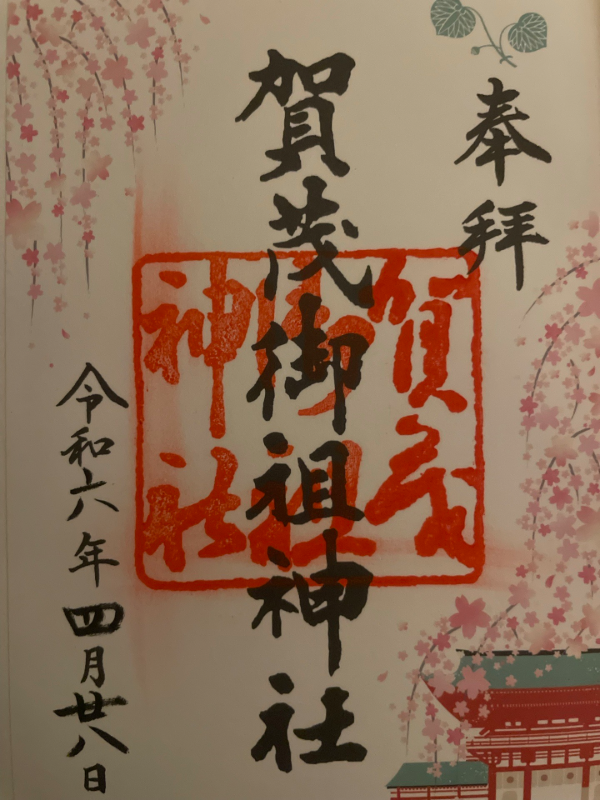 奉拝
賀茂御祖神社
賀茂
御祖
神社
令和六年四月廿八日